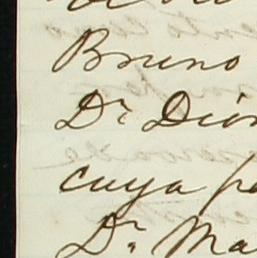 Bruno
Dr. Dion
cuya pa
Dr. Ma